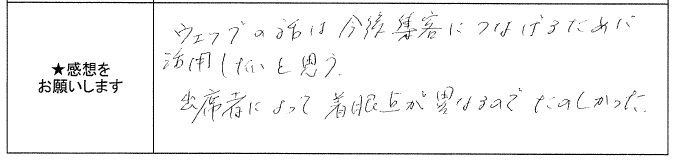 ★感想を
お願いします
ウェブの話は今後集客につなげるために
活用したいと思う.
出席者によって着眼点が異なるのでたのしかった.